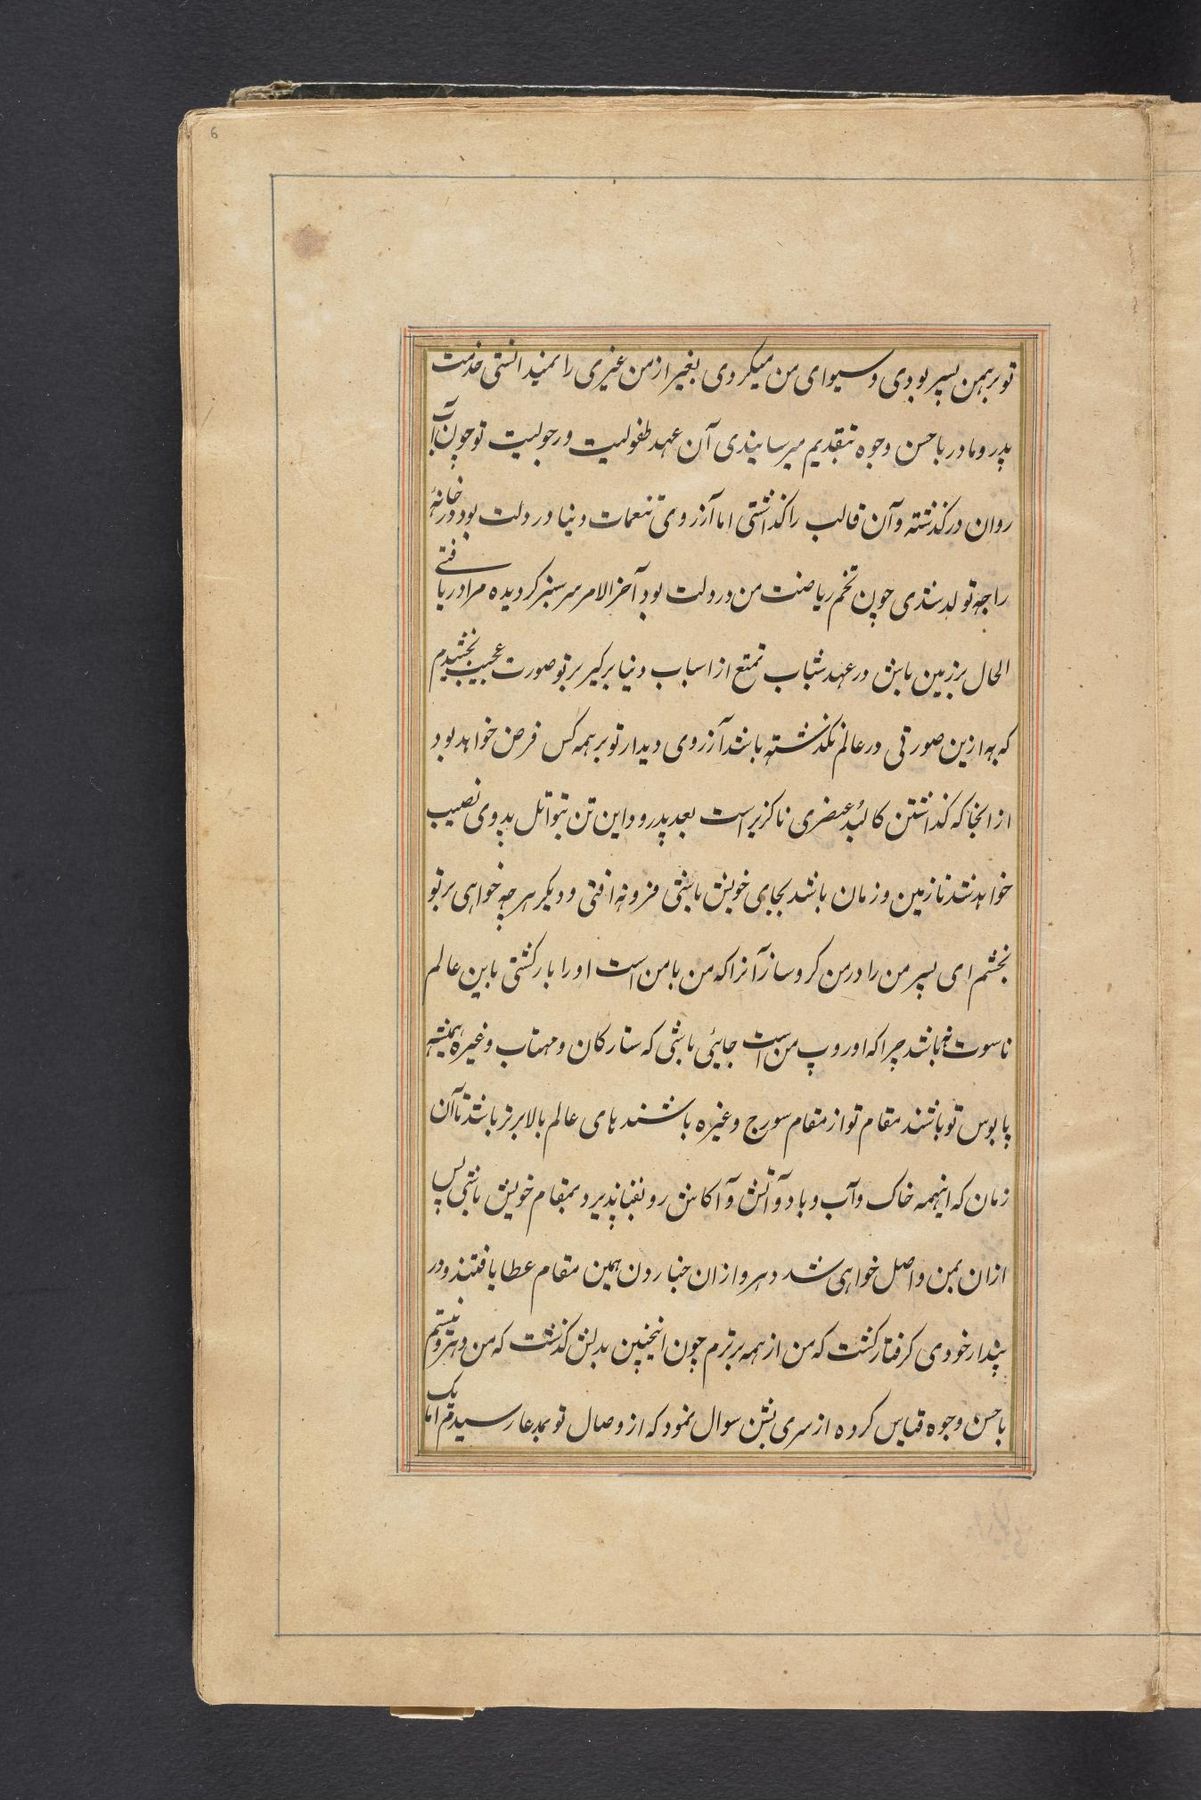 6
تو برهمن پسر بودی و سیوای من میکردی بغیر از من غیری را نمیدانستی خدمت
پدر و مادر باحسن وجوه بتقدیم میرسانیدی آن عهد طفولیت و رجولیت تو چون آب
روان درگذشته و آن قالب را گذاشتی اما آرزوی تنعمات دنیا در دلت بود در خانهٔ
راجه تولد شدی چون تخم ریاضت من در دلت بود آخرالامر سرسبز گردیده مرا دریافتی
الحال بر زمین باش در عهد شباب تمتع از اسباب دنیا برگیر بر تو صورت عجیب بخشیدم
که به ازین صورتی در عالم نگذشته باشد آرزوی دیدار تو بر همه کس فرض خواهد بود
از انجا که گذاشتن کالبد عنصری ناگزیر است بعد پدرود این تن بتو اتل پدوی نصیب
خواهد شد تا زمین و زمان باشد بجای خویش باشی فرو نه افتی و دیگر هر چه خواهی بر تو
بخشم ای پسر من را در من گرو ساز آنرا که من با من است او را بازگشتی باین عالم
ناسوت نباشد چرا که او روپ من است جائی باشی که ستارگان و مهتاب و غیره همیشه
پابوس تو باشند مقام تو از مقام سورج و غیره باشندهای عالم بالا برتر باشد تا آن
زمان که اینهمه خاک و آب و باد و آتش و آکاش رو بفنا پذیرد بمقام خویش باشی پس
ازان بمن واصل خواهی شد دهرو ازان جناردن همین مقام عطا یافتند و در
پندار خودی گرفتار گشت که من از همه برترم چون اینچنین بدلش گذشت که من دهرو نیستم
باحسن وجوه قیاس کرده از سری بشن سوال نمود که از وصال تو بمدعا رسیدم اما یک